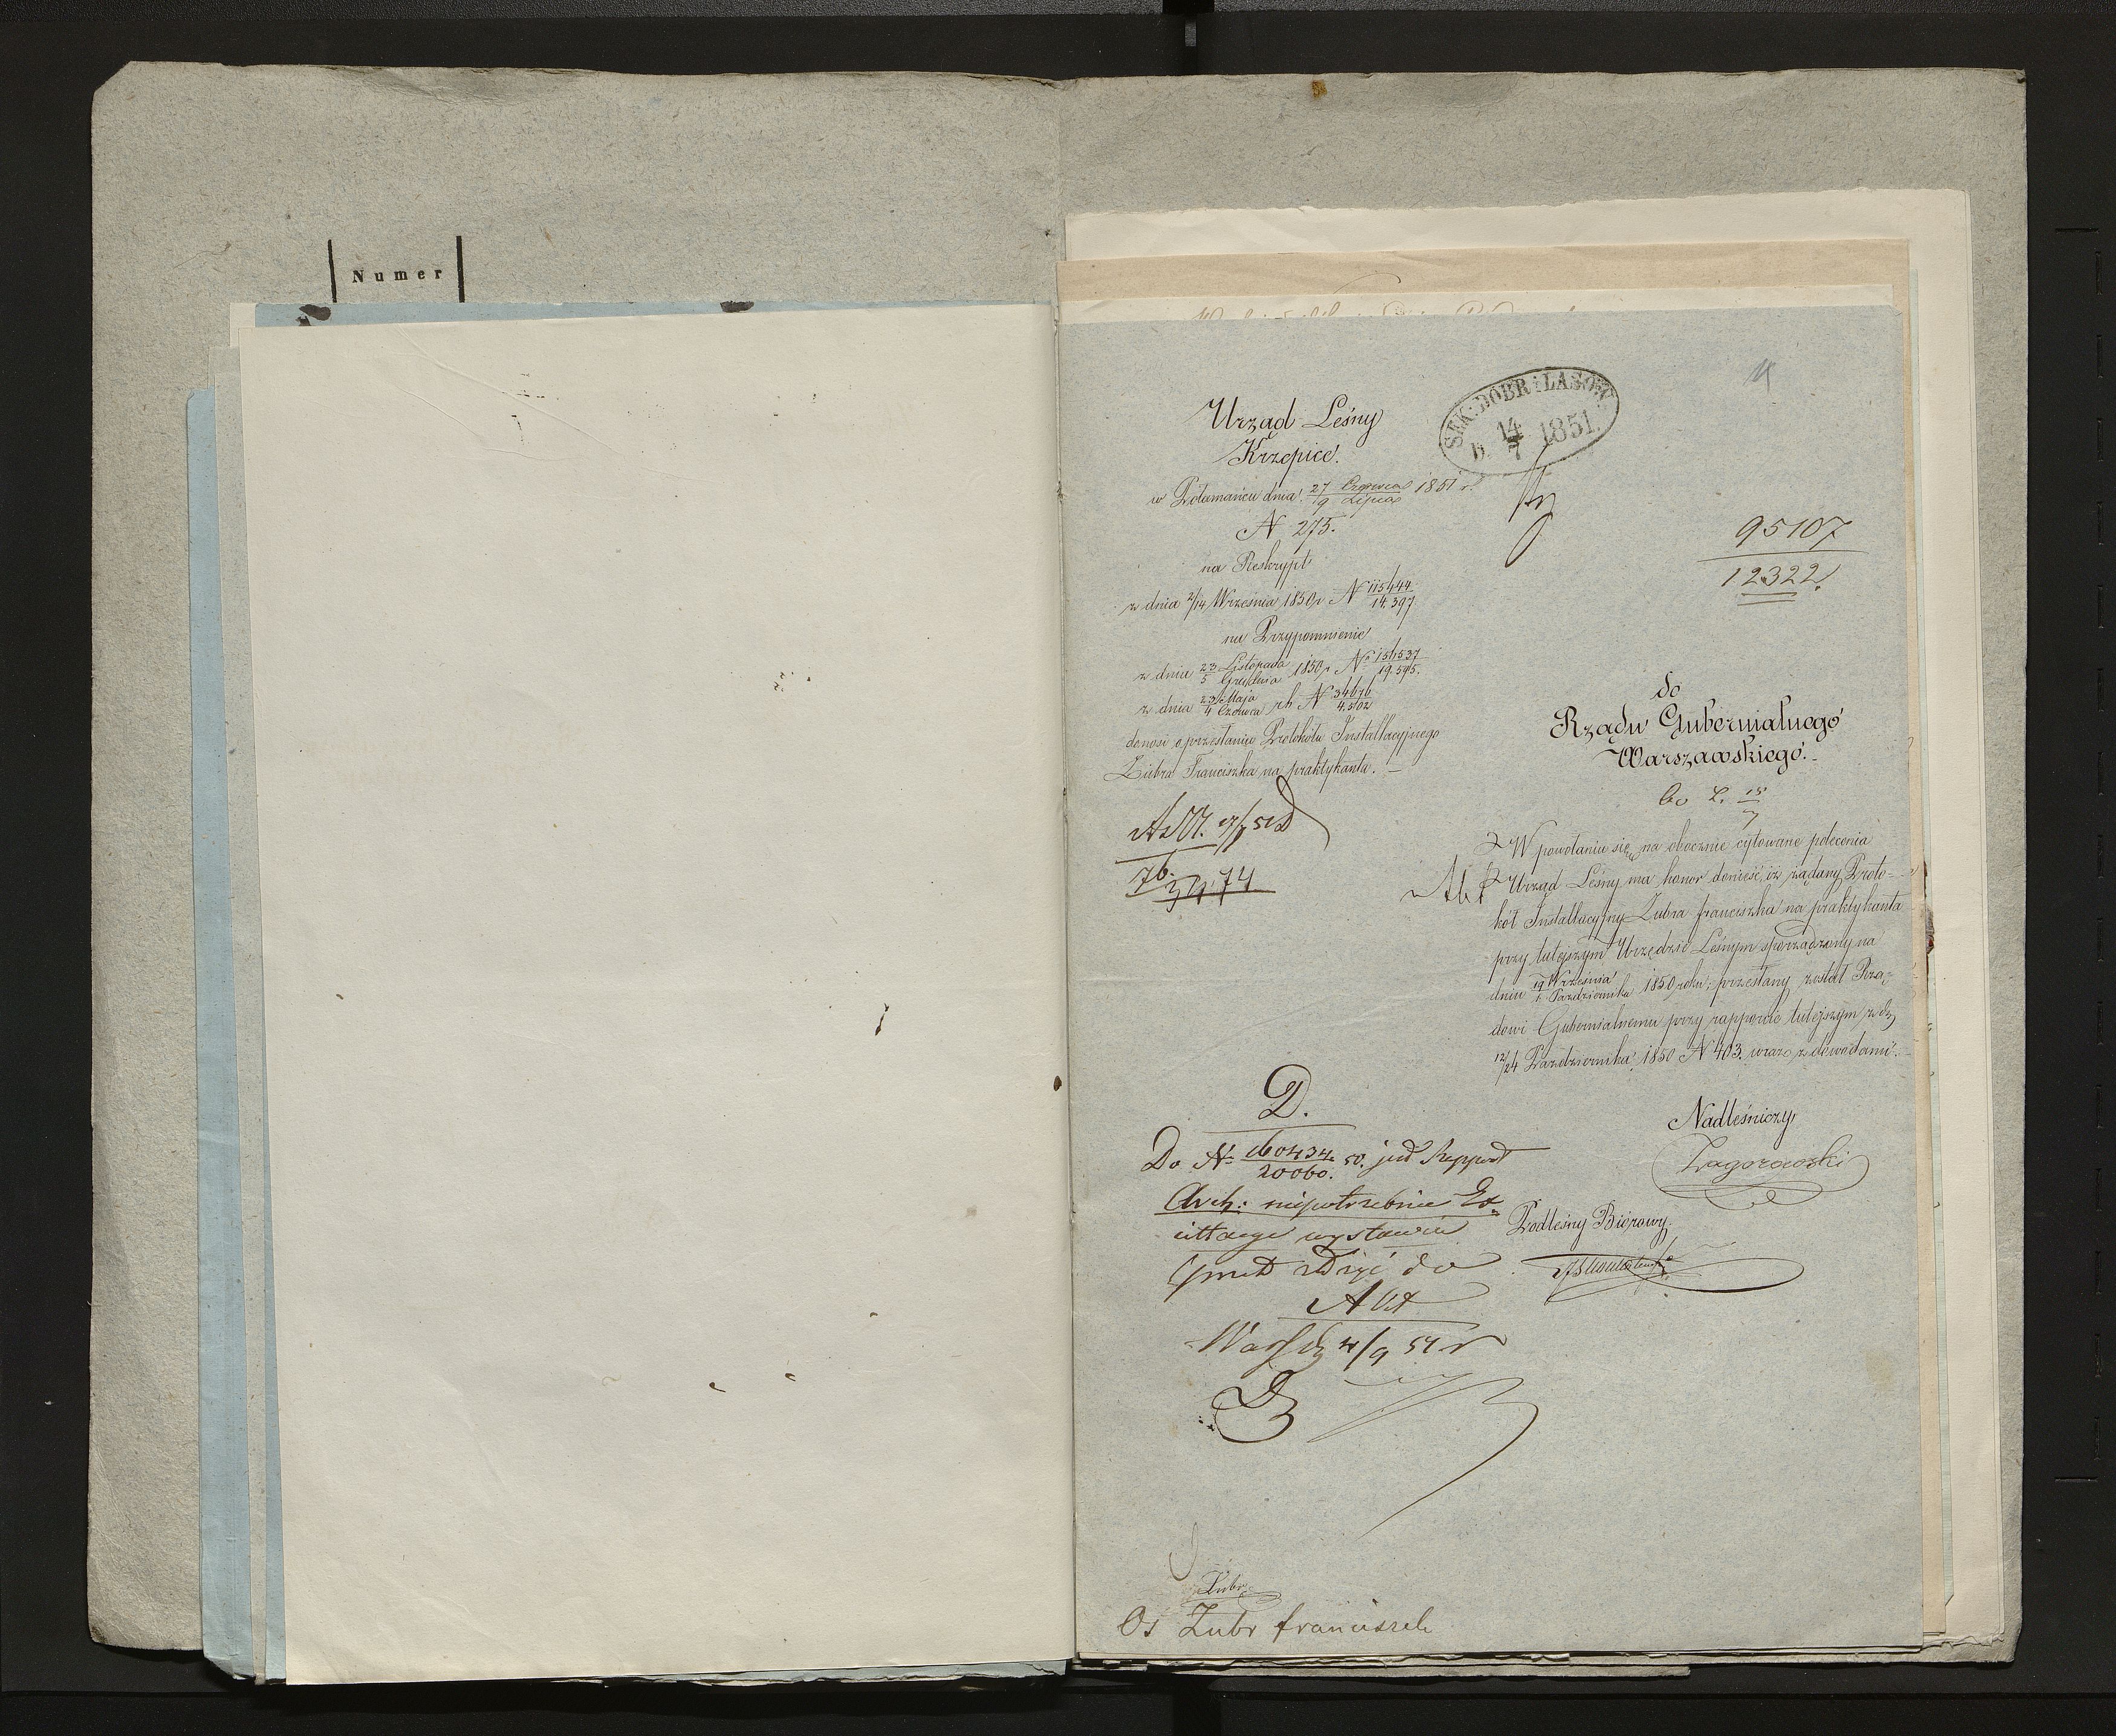 Numer
SEK: DOBR i LASÓW
D. 14/7 1851.
Urząd Leśny
Krzepice.
w dnia 27 Czerwca / 9 Lipca 1851 r.
N 275.
na Reskrypt
z dnia 2/14 Września 1850 r N 115444 / 14.397
na Przypomnienie
z dnia 23 Listopada / 5 Grudnia 1850 r No 151537 / 19.595.
z dnia 23 Maja / 4 Czerwca rb N 34616 / 4.502
donosi o przesłaniu Protokołu Installacyjnego
Żubra Franciszka na praktykanta.
95107
12322
do
Rządu Gubernialnego
Warszawskiego.
W powołaniu się na obocznie cytowane polecenia
Urząd Leśny ma honor donieść, iż żądany Proto-
kół Installacyjny Żubra franciszka na praktykanta
przy tutejszym Urzędzie Leśnym sporządzony na
dniu 19 Września / 1 Października 1850 roku, przesłany został Rzą-
dowi Gubernialnemu przy rapporcie tutejszym z d.
12/24 Października 1850 N 403. wraz z dowodami.
Nadleśniczy
Zagorowski
Podleśny Biórowy
D.
Do N 160434 / 20060. 50. jest Rapport
Arch: niepotrzebnie Ex-
citarge wystawia
do
Akt
4/9 51 r
Żubr
Os Zubr franciszek